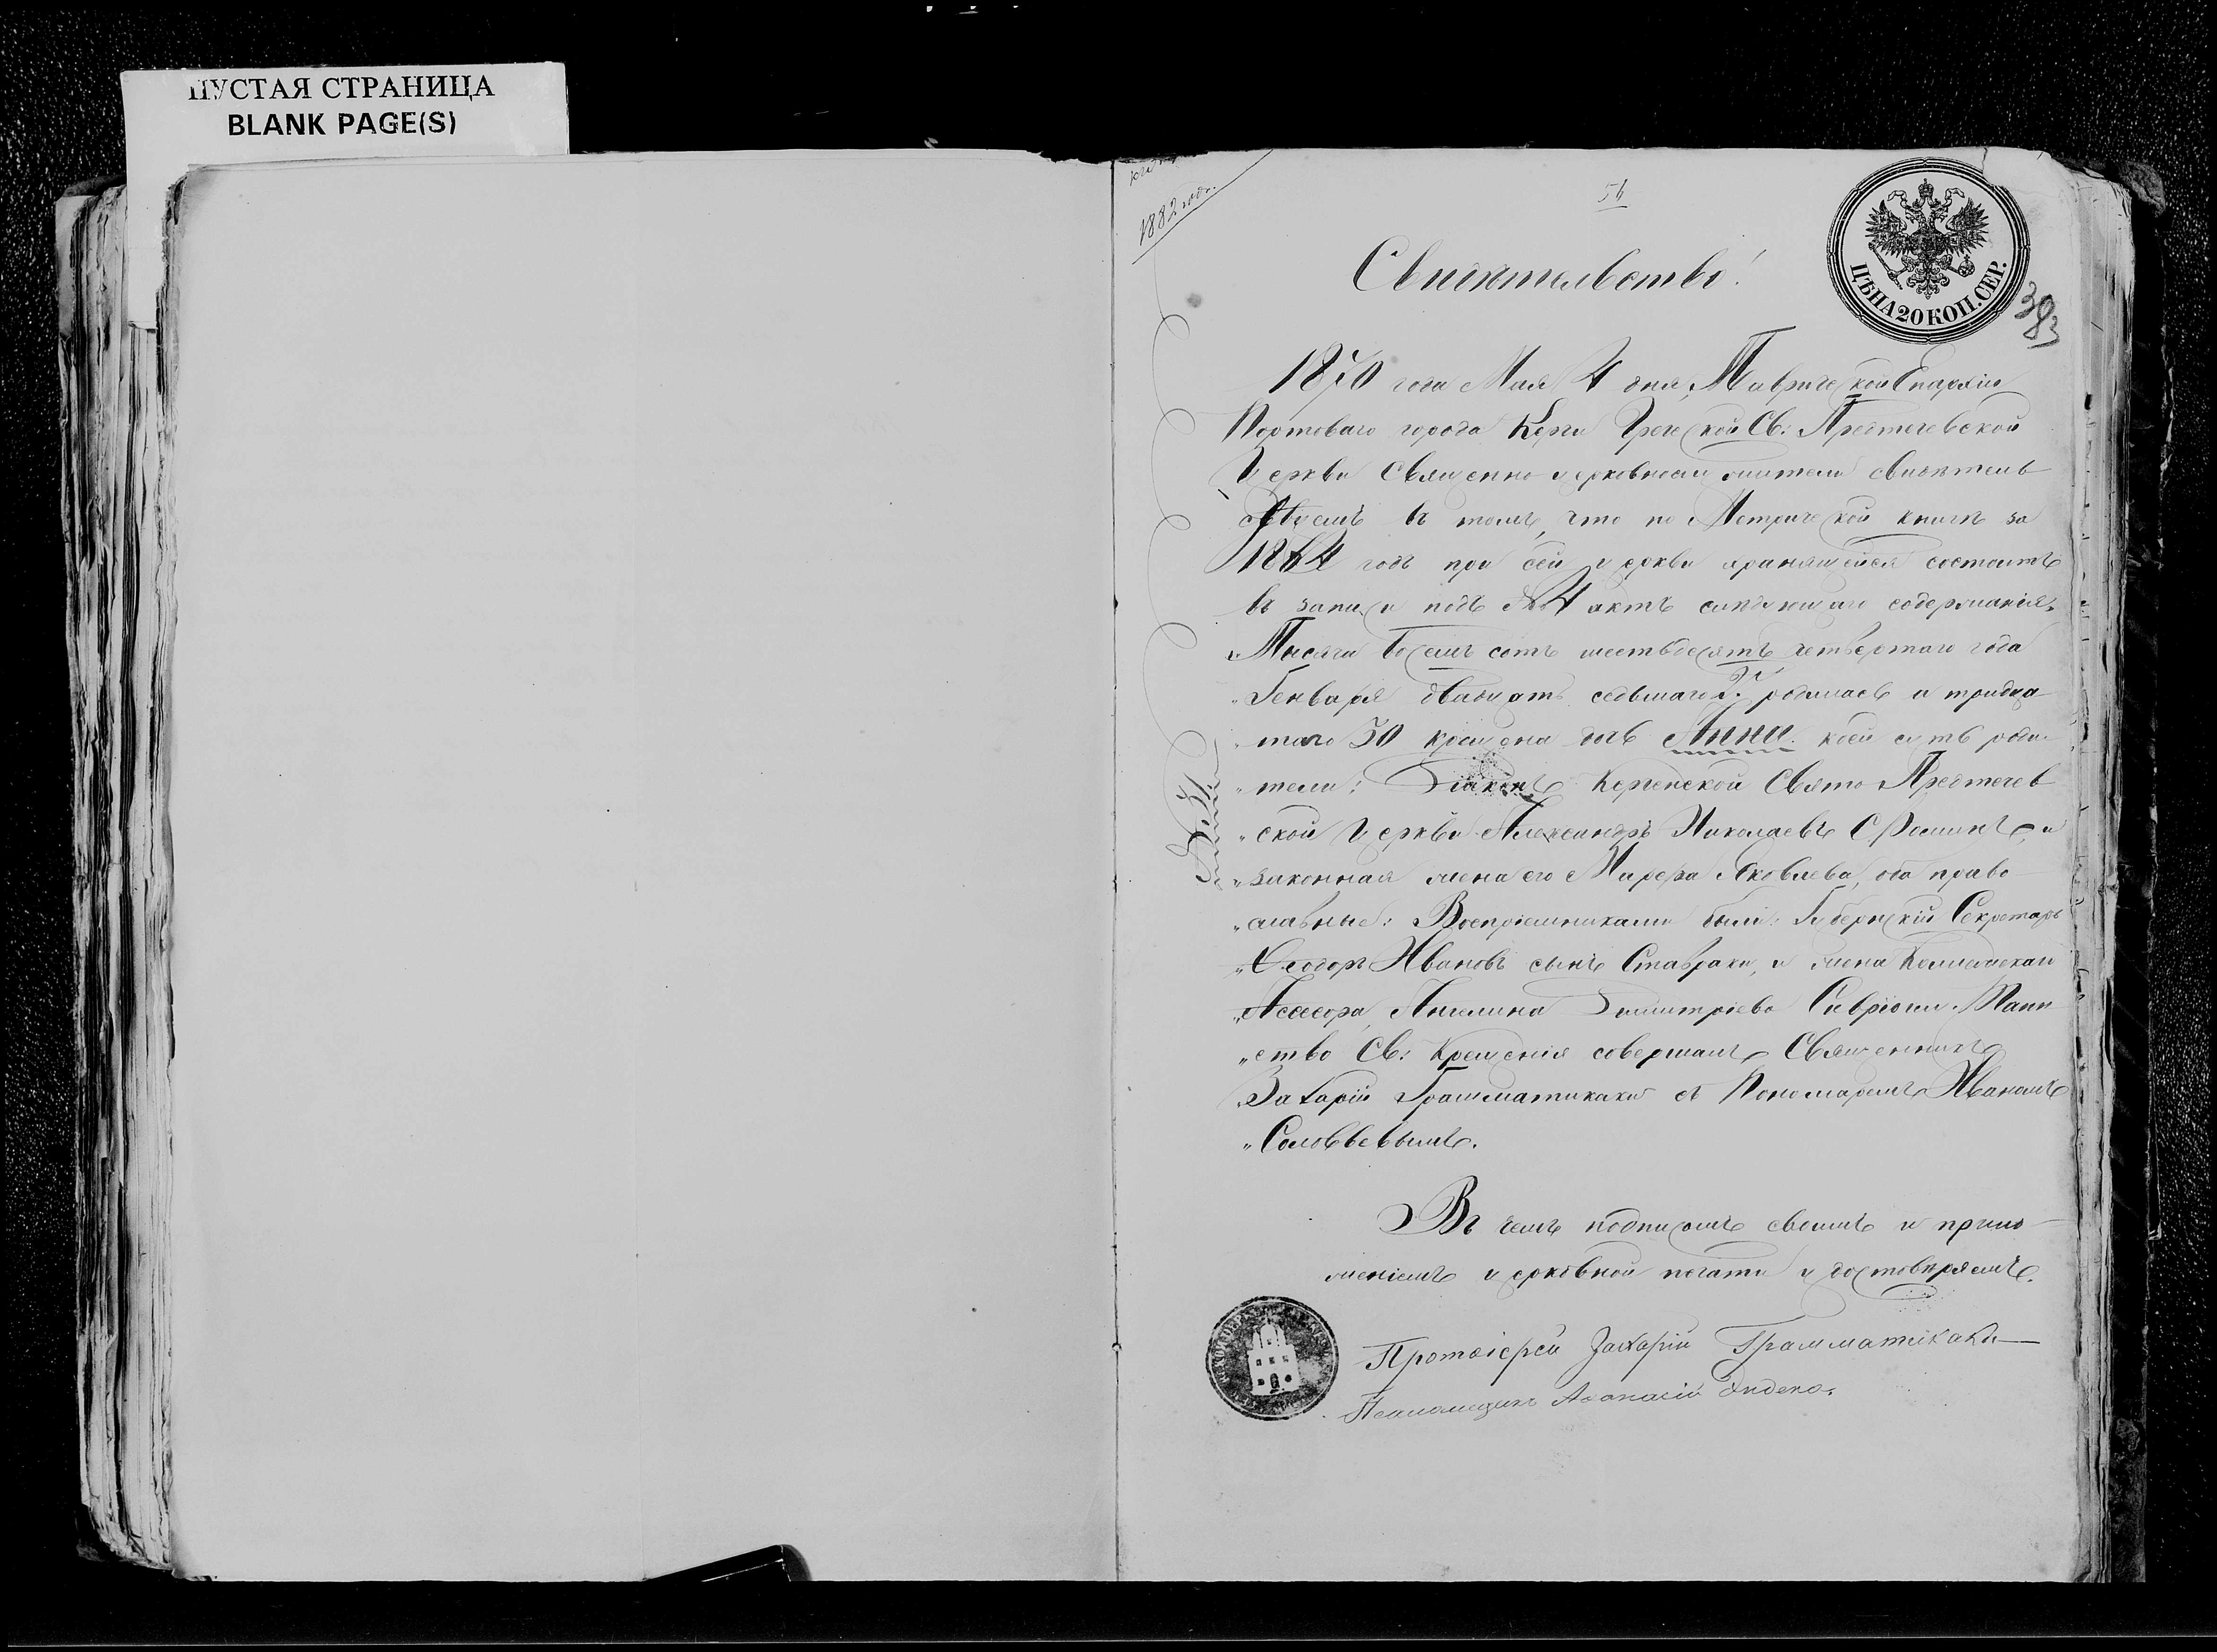 ПУСТАЯ СТРАНИЦА
BLANK PAGE(S)
1882 года.
56
Свидѣтельство!
ЦѢНА 20 КОП. СЕР.
383
1870 года Мая 4 дня, Таврической Епархіи
Портоваго города Керчи Греческой Св: Предтечевской
Церкви Священно-церковнослужители свидѣтель
ствуемъ въ томъ, что по Метрической книгѣ за
1864 годъ при сей церкви хранящейся состоитъ
въ записи подъ № 4 актъ слѣдующаго содержанія:
„Тысяча восемъ сотъ шестьдесятъ четвертаго года
„Генваря двадцать седьмаго 27. родилась и тридца
„таго 30 крещена дочь Анна. коей суть роди
„тели: Діаконъ Керченской Свято Предтечев
„ской Церкви Александръ Николаевъ и
„законная жена его Яковлева, оба право
„славные: Воспріемниками были: Губернскій Секретарь
„Ѳеодоръ Ивановъ сынъ Ставраки, и жена Коллежскаго
„Асессора, Ангелина Димитріева Таин
„ство Св: Крещенія совершалъ Священникъ
„Захарій Грамматикаки съ Пономаремъ Иваномъ
„Соловьевымъ.
Въ чемъ подписомъ своимъ и прило
женіемъ церковной печати удостовѣряемъ.
Протоіерей Захарій Грамматикаки
Псаломщикъ Аѳанасій